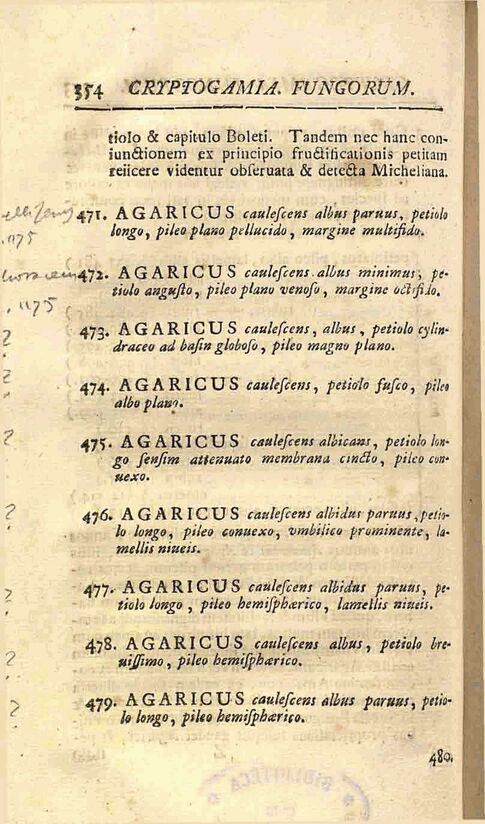 354 CRYPTOGAMIA. FUNGORUM.
tiolo & capitulo Boleti. Tandem nec hanc con-
iunctionem ex principio fructificationis petitam
reiicere videntur obſeruata & detecta Micheliana.
471. AGARICUS cauleſcens albus paruus, petiolo
longo, pileo plano pellucido, margine multifido.
.1175
472. AGARICUS cauleſcens albus minimus, pe-
tiolo anguſto, pileo plano venoſo, margine octifido.
.1175
473. AGARICUS cauleſcens, albus, petiolo cylin-
draceo ad baſin globoſo, pileo magno plano.
?
474. AGARICUS cauleſcens, petiolo fuſco, pileo
albo plano.
?
475. AGARICUS cauleſcens albicans, petiolo lon-
go ſenſim attenuato membrana cincto, pileo con-
uexo.
?
476. AGARICUS cauleſcens albidus paruus, petio-
lo longo, pileo conuexo, vmbilico prominente, la-
mellis niueis.
?
477. AGARICUS cauleſcens albidus paruus, pe-
tiolo longo, pileo hemiſphærico, lamellis niueis.
?
478. AGARICUS cauleſcens albus, petiolo bre-
uiſſimo, pileo hemiſphærico.
?
479. AGARICUS cauleſcens albus paruus, petio-
lo longo, pileo hemiſphærico.
?
480.
BIBLIOTECA